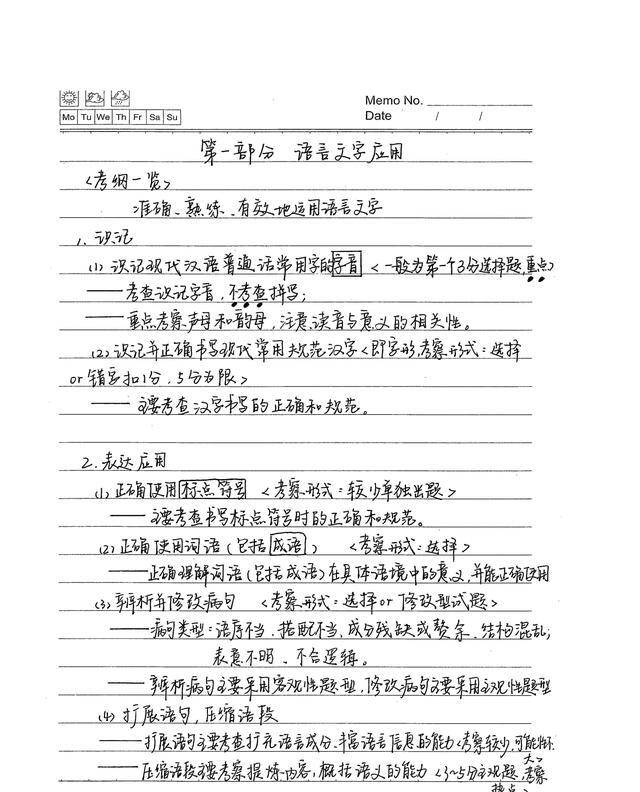 Memo No.
Mo Tu We Th Fr Sa Su
Date / /
第一部分 语言文字应用
<考纲一览>
准确、熟练、有效地运用语言文字
1. 识记
(1) 识记现代汉语普通话常用字的字音 <一般为第一个3分选择题,重点>
——考查识记字音,不考查拼写;
——重点考察声母和韵母,注意读音与意义的相关性。
(2) 识记并正确书写现代常用规范汉字<即字形,考察形式:选择
or错字扣1分,5分为限>
——主要考查汉字书写的正确和规范。
2. 表达应用
(1) 正确使用标点符号 <考察形式:较少单独出题>
——主要考查书写标点符号时的正确和规范。
(2) 正确使用词语(包括成语) <考察形式:选择>
——正确理解词语(包括成语)在具体语境中的意义,并能正确使用
(3) 辨析并修改病句 <考察形式:选择or修改型试题>
——病句类型:语序不当、搭配不当、成分残缺或赘余、结构混乱;
表意不明、不合逻辑。
——辨析病句主要采用客观性题型,修改病句主要采用主观性题型
(4) 扩展语句,压缩语段
——扩展语句主要考查扩充语言成分、丰富语言信息的能力<考察较少,可能性不
大>
——压缩语段主要考察提炼内容,概括语义的能力 <3~5分主观题,考察
热点>